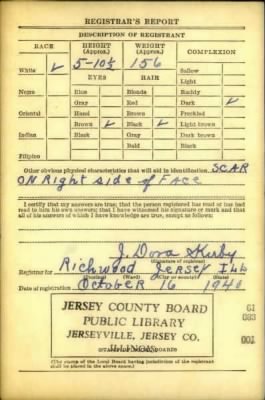 REGISTRAR'S REPORT
DESCRIPTION OF REGISTRANT
RACE HEIGHT (Approx.) WEIGHT (Approx.) COMPLEXION
White ✓ 5-10½ 156 Sallow
EYES HAIR Light
Negro Blue Blonde Ruddy
Gray Red Dark ✓
Oriental Hazel Brown Freckled
Brown ✓ Black ✓ Light brown
Indian Black Gray Dark brown
Bald Black
Filipino
Other obvious physical characteristics that will aid in identification SCAR
ON Right side of FACE
I certify that my answers are true; that the person registered has read or has had
read to him his own answers; that I have witnessed his signature or mark and that
all of his answers of which I have knowledge are true, except as follows:
J. Dora
(Signature of registrar)
Registrar for Richwood Jersey Ill
(Precinct) (Ward) (City or county) (State)
Date of registration October 16 1940
JERSEY COUNTY BOARD
PUBLIC LIBRARY
JERSEYVILLE, JERSEY CO.
ILLINOIS
61
083
001
(The stamp of the Local Board having jurisdiction of the registrant
shall be placed in the above space.)